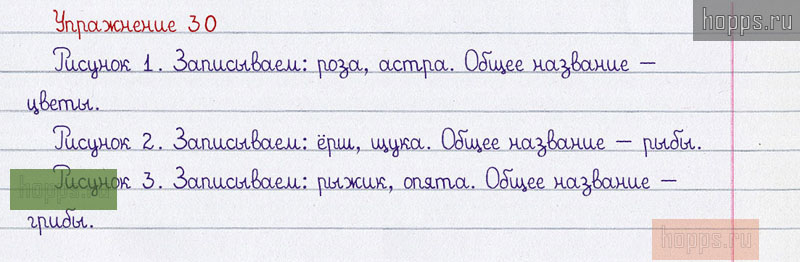 Упражнение 30
hopps.ru
Рисунок 1. Записываем: роза, астра. Общее название –
цветы.
Рисунок 2. Записываем: ёрш, щука. Общее название – рыбы.
Рисунок 3. Записываем: рыжик, опята. Общее название –
hopps.ru
грибы.
hopps.ru